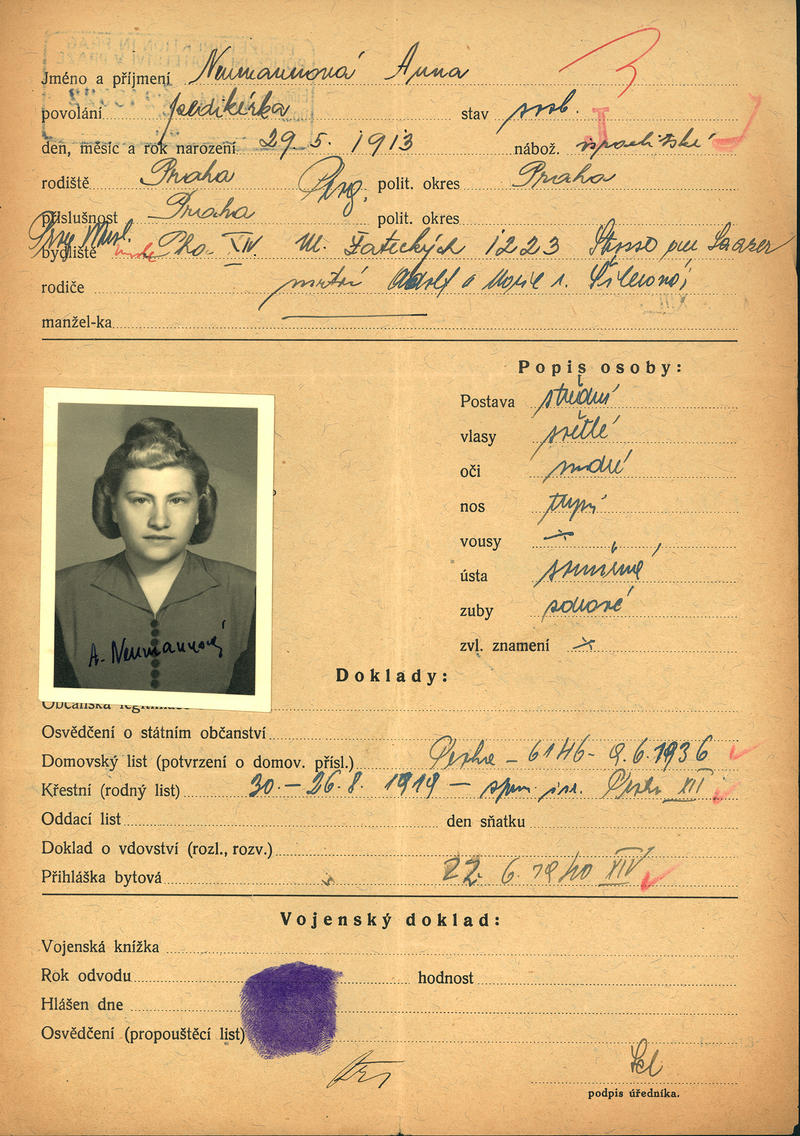 Jméno a příjmení Neumannová Anna
povolání pedikérka stav svob. J
den, měsíc a rok narození 29. 5. 1913 nábož. israelitské
rodiště Praha Prg. polit. okres Praha
příslušnost Praha polit. okres
bydliště Pha. XIV. ul. Žateckých 1223
rodiče mrtví Adolf a Marie r.
manžel-ka
Popis osoby:
Postava střední
vlasy světlé
oči modré
nos tupý
vousy
ústa souměrná
zuby zdravé
zvl. znamení
A. Neumannová
Doklady:
Občanská legitimace
Osvědčení o státním občanství
Domovský list (potvrzení o domov. přísl.) Praha - 6146 - 9.6.1936
Křestní (rodný list) 30. - 26.8. 1919 - isr. Praha XII
Oddací list den sňatku
Doklad o vdovství (rozl., rozv.)
Přihláška bytová 22. 6. 1940 XIV
Vojenský doklad:
Vojenská knížka
Rok odvodu hodnost
Hlášen dne
Osvědčení (propouštěcí list)
podpis úředníka.